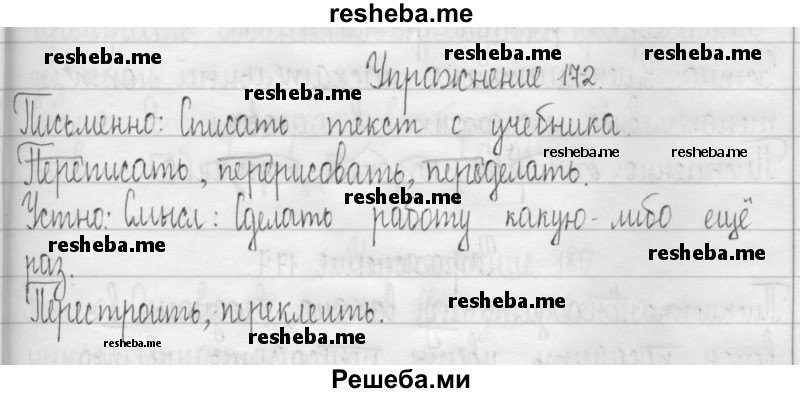 resheba.me
resheba.me resheba.me resheba.me
Упражнение 172.
resheba.me
Письменно: Списать текст с учебника.
resheba.me resheba.me
Переписать, перерисовать, переделать.
resheba.me
Устно: Смысл: Сделать работу какую-либо ещё
resheba.me resheba.me
раз.
resheba.me
Перестроить, переклеить.
resheba.me
resheba.me resheba.me
Решеба.ми